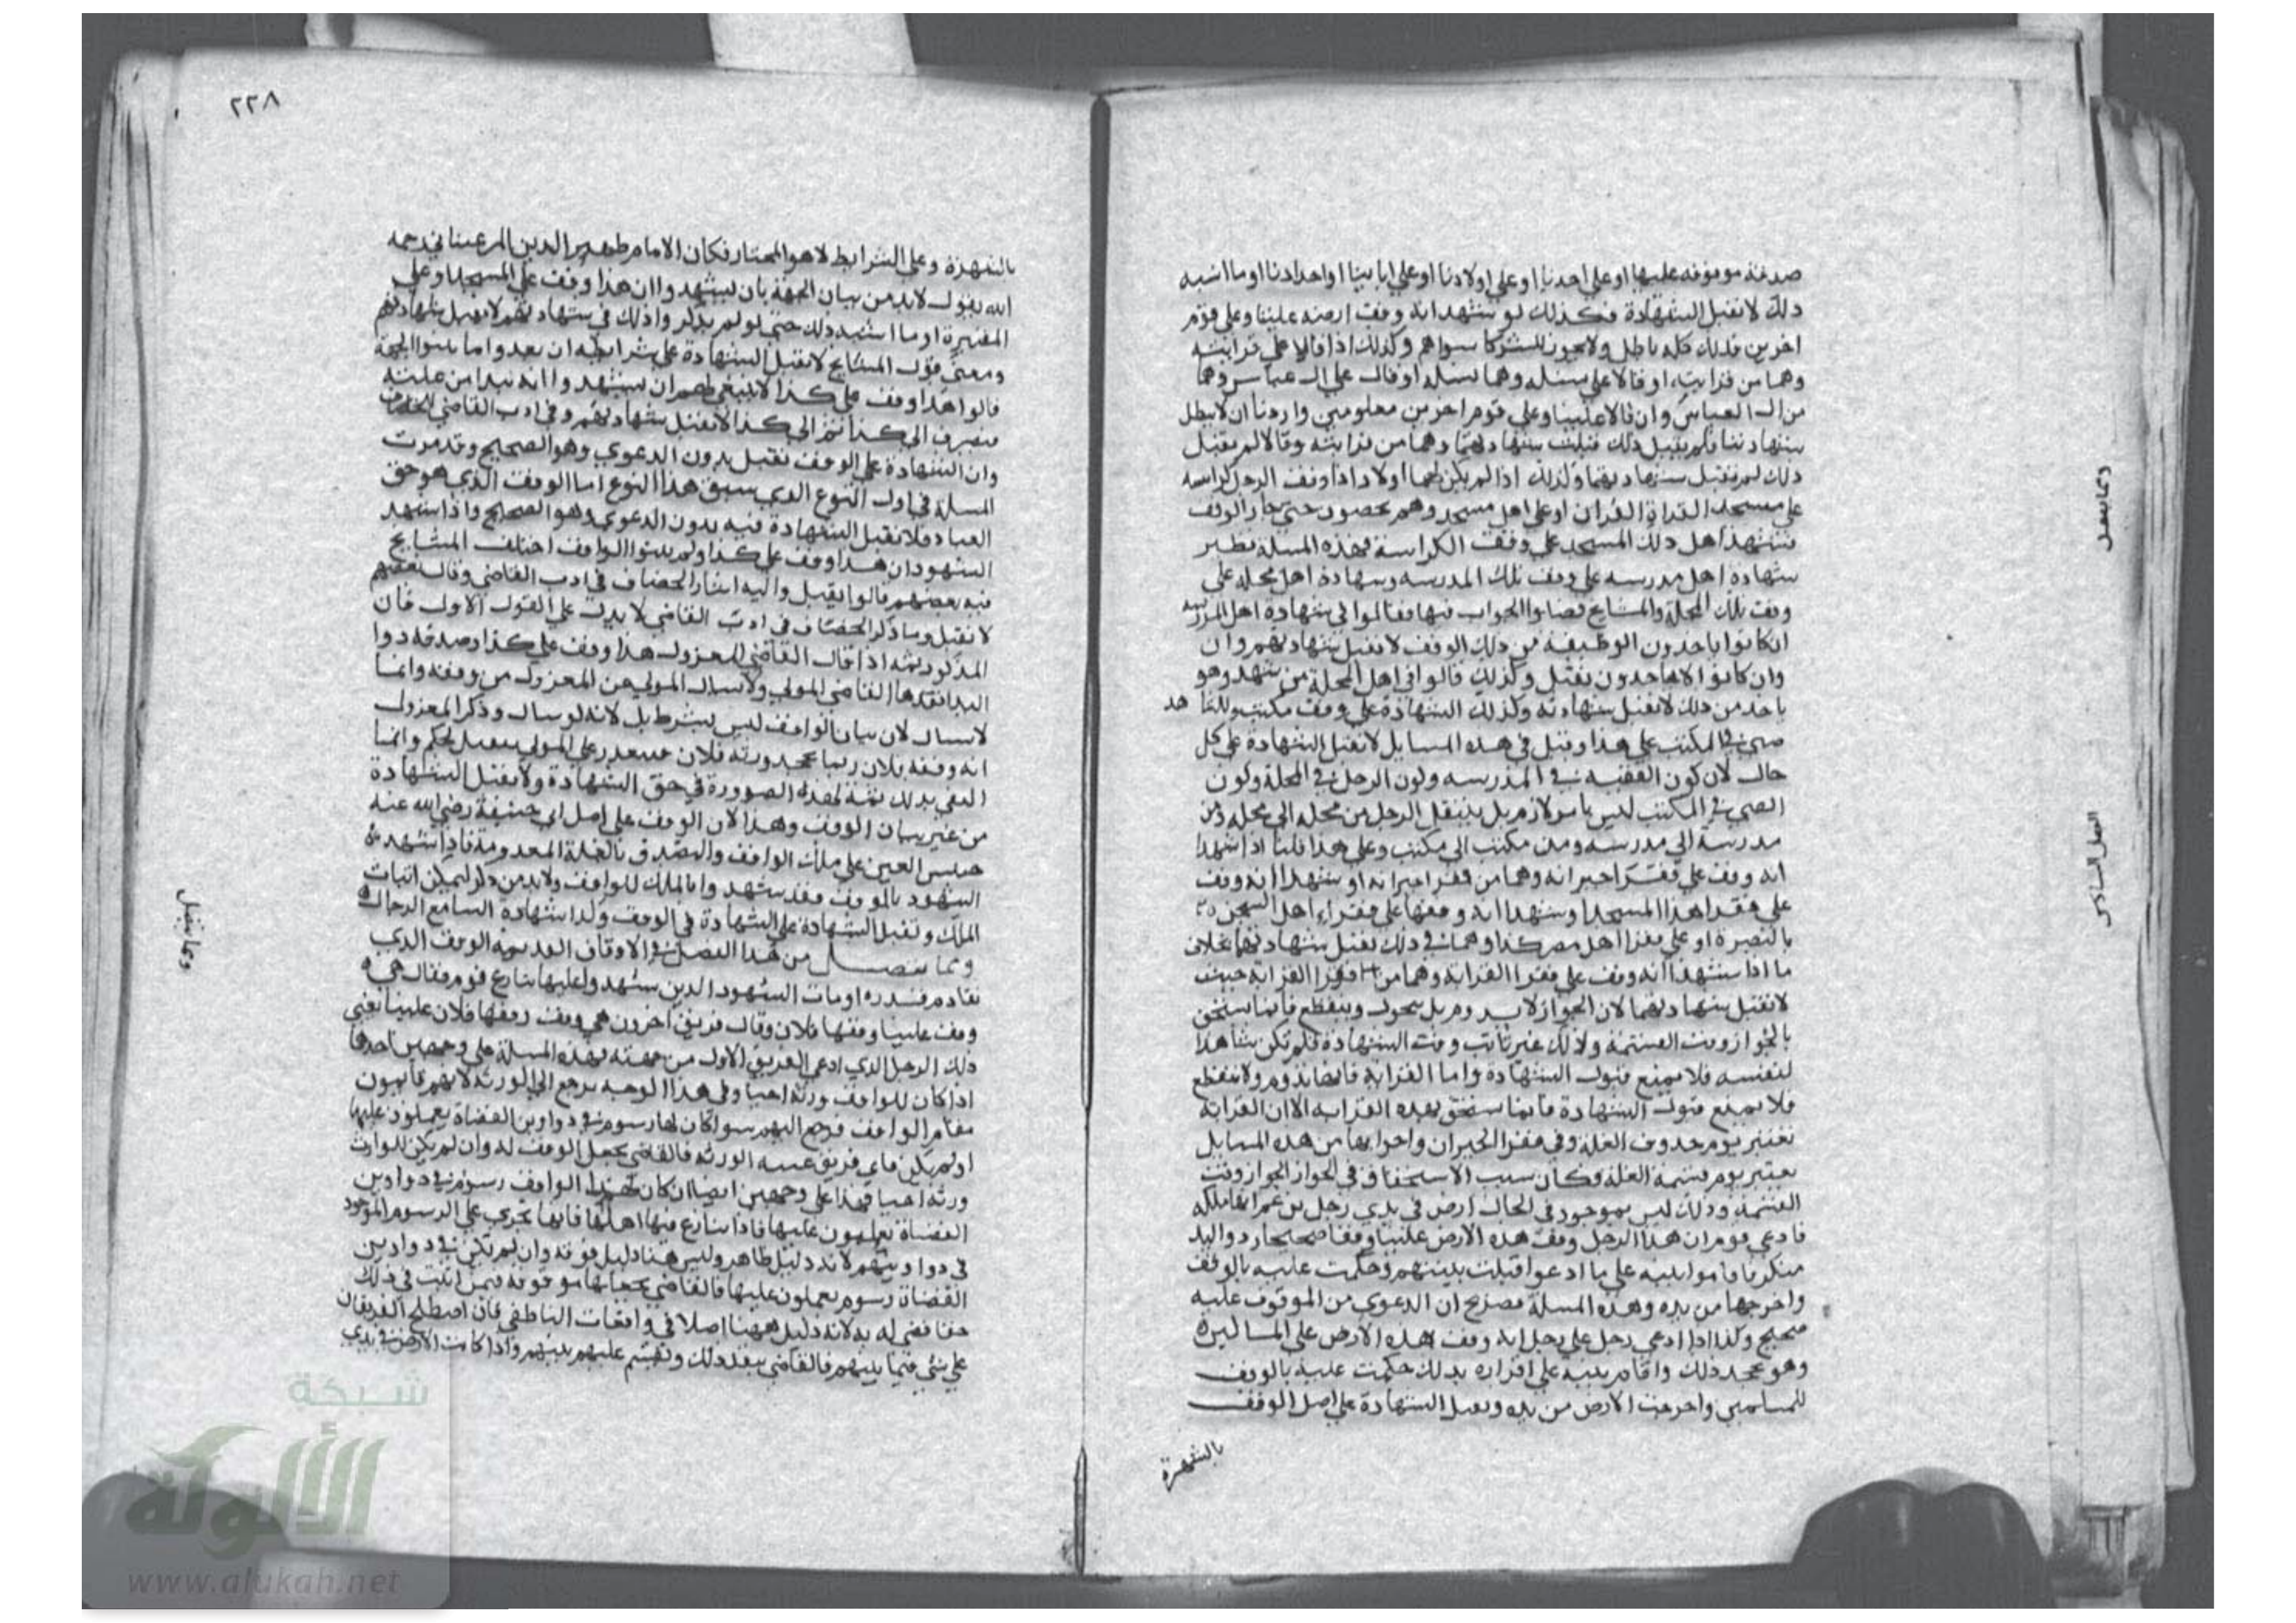 صدقة موقوفه عليها او على احدنا او على اولادنا او على ابايينا او اجدادنا او ما اشبه
ذلك لا تقبل الشهادة فكذلك لو شهد انه وقف ارضه علينا وعلى قوم
اخرين فذلك كله باطل ولا يجوز للشركا سواهم وكذلك اذا قالا على قرابته
وهما من قرابته او قالا على نسله وهما نسله او قال على ال عباس وهما
من ال العباس وان قالا علينا وعلى قوم اخرين معلومين واردنا ان لا يبطل
شهادتنا فلم يقبل ذلك قبلت شهادتهما وهما من قرابته وقالا لم يقبل
ذلك لم تقبل شهادتهما وكذلك اذا لم يكن لهما اولاد اذا وقف الرجل كراسه
على مسجد القراة القران او على اهل مسجد وهم يحصون حتى جاز الوقف
فشهد اهل ذلك المسجد على وقف الكراسة فهذه المسلة نظير
شهادة اهل مدرسه على وقف تلك المدرسه وشهادة اهل محله على
وقف تلك المحلة والمشايخ فصلوا الجواب فيها فقالوا في شهادة اهل المدرسه
ان كانوا ياخدون الوظيفة من ذلك الوقف لا تقبل شهادتهم وان
وان كانوا لا ياخدون تقبل وكذلك قالوا في اهل المحلة من شهد وهو
ياخد من ذلك لا تقبل شهادته وكذلك الشهادة على وقف مكتب وللشاهد
صبي في المكتب على هذا وقيل في هذه المسايل لا تقبل الشهادة على كل
حال لان كون الفقيه في المدرسه وكون الرجل في المحلة وكون
الصبي في المكتب ليس بامر لازم بل ينتقل الرجل من محله الى محله ومن
مدرسة الى مدرسه ومن مكتب الى مكتب وعلى هذا قلنا اذا شهدا
انه وقف على فقراء جيرانه وهما من فقرا جيرانه او شهدا انه وقف
على فقرا هذا المسجد او شهدا انه وقفها على فقراء اهل السجن
بالبصرة او على فقرا اهل مصر كذا وهما في ذلك تقبل شهادتهما بخلاف
ما اذا شهدا انه وقف على فقرا القرابة وهما من فقرا القرابة حيث
لا تقبل شهادتهما لان الجواز لا يدوم بل يتحول وينقطع فانما يستحق
بالجواز وقت القسمة وذلك غير ثابت وقت الشهادة فلم تكن شاهدا
لنفسه فلا يمنع قبول الشهادة واما القرابة فانها تدوم ولا تنقطع
فلا يمنع قبول الشهادة فانما يستحق بهذه القرابه الا ان القرابة
تعتبر يوم حدوث الغلة وفي فقرا الجيران واخواتها من هذه المسايل
يعتبر يوم قسمة الغلة وكان سبب الاستحقاق في الجواز الجواز وقت
القسمة وذلك ليس بموجود في الحال ارض في يدي رجل يزعم انها ملكه
فادعى قوم ان هذا الرجل وقف هذه الارض علينا وقفا صحيحا وذو اليد
منكر فاقاموا بينة على ما ادعوا قبلت بينتهم وحكمت عليه بالوقف
واخرجها من يده وهذه المسلة تصريح ان الدعوى من الموقوف عليه
صحيح وكذا اذا ادعى رجل على رجل انه وقف هذه الارض على المساكين
وهو يجحد ذلك واقام بينة على اقراره بذلك حكمت عليه بالوقف
للمساكين واخرجت الارض من يده وتقبل الشهادة على اصل الوقف
بالشهرة
ومما يتصل
الفصل السادس
٢٢٨
بالشهرة وعلى الشرايط لا هو المختار فكان الامام ظهير الدين المرغيناني رحمه
الله يقول لا بد من بيان الجهة بان يشهدوا ان هذا وقف على المسجد او على
المقبرة او ما اشبه ذلك حتى لو لم يذكروا ذلك في شهادتهم لا تقبل شهادتهم
ومعنى قول المشايخ لا تقبل الشهادة على شرايطه ان بعدوا ما بينوا الجهة
قالوا هذا وقف على كذا لا ينبغي لهم ان يشهدوا انه يبدا من غلته
فيصرف الى كذا ثم الى كذا لا تقبل شهادتهم وفي ادب القاضي للخصاف
وان الشهادة على الوقف تقبل بدون الدعوى وهو الصحيح وقد مرت
المسلة في اول النوع الذي سبق هذا النوع اما الوقف الذي هو حق
العباد فلا تقبل الشهادة فيه بدون الدعوى وهو الصحيح واذا شهد
الشهود ان هذا وقف على كذا ولم يبينوا الواقف اختلف المشايخ
فيه بعضهم قالوا تقبل واليه اشار الخصاف في ادب القاضي وقال بعضهم
لا تقبل وما ذكر الخصاف في ادب القاضي لا يدل على القول الاول فان
المذكور ثمه اذا قال القاضي المعزول هذا وقف على كذا وصدقه ذوا
اليد انفذها القاضي المولى ولا يسال المولى عن المعزول من وقفه وانما
لا يسال لان بيان الواقف ليس بشرط بل لانه لو سال وذكر المعزول
انه وقفه فلان ربما يجحد ورثة فلان فيتعذر على المولى تنفيذ الحكم وانما
اكتفى بذلك ثمة لهذه الضرورة في حق الشهادة ولا تقبل الشهادة
من غير بيان الوقف وهذا لان الوقف على اصل ابي حنيفة رضي الله عنه
حبس العين على ملك الواقف والتصدق بالغلة المعدومة فاذا شهد
الشهود بالوقف فقد شهدوا بالملك للواقف ولا بد من ذكر ليمكن اثبات
الملك وتقبل الشهادة على الشهادة في الوقف وكذا شهادة النسا مع الرجال
ومما يتصل من هذا الفصل في الاوقاف القديمة الوقف الذي
تقادم فتدره او مات الشهود الذين شهدوا عليها تنازع قوم فقال هي
وقف علينا وقفها فلان وقال فريق اخرون هي وقف وقفها فلان علينا نعني
ذلك الرجل الذي ادعى الفريق الاول من جهته فهذه المسلة على وجهين احدها
اذا كان للواقف ورثة احيا وفي هذا الوجه يرجع الى الورثة لانهم قايمون
مقام الواقف فرجع اليهم سوا كان لها رسوم في دواوين القضاة يعملون عليها
او لم يكن فاي فريق عينه الورثه فالقاضي يجعل الوقف له وان لم يكن للوارث
ورثة احيا فهذا على وجهين ايضا ان كان لهذا الواقف رسوم في دواوين
القضاة يعملون عليها فاذا تنازع فيها اهلها فانها تجري على الرسوم الموجود
في دواوينهم لانه دليل ظاهر وليس هنا دليل فوقه وان لم تكن في دواوين
القضاة رسوم يعملون عليها فالقاضي يجعلها موقوفة فمن اثبت في ذلك
حقا قضى له به لانه دليل ههنا اصلا في واقعات الناطفي فان اصطلح الفريقان
على شي فيما بينهم فالقاضي ينفذ ذلك وتقسم عليهم بينهم واذا كانت الارض في يدي
ومما يتصل
شبكة
الألوكة
www.alukah.net